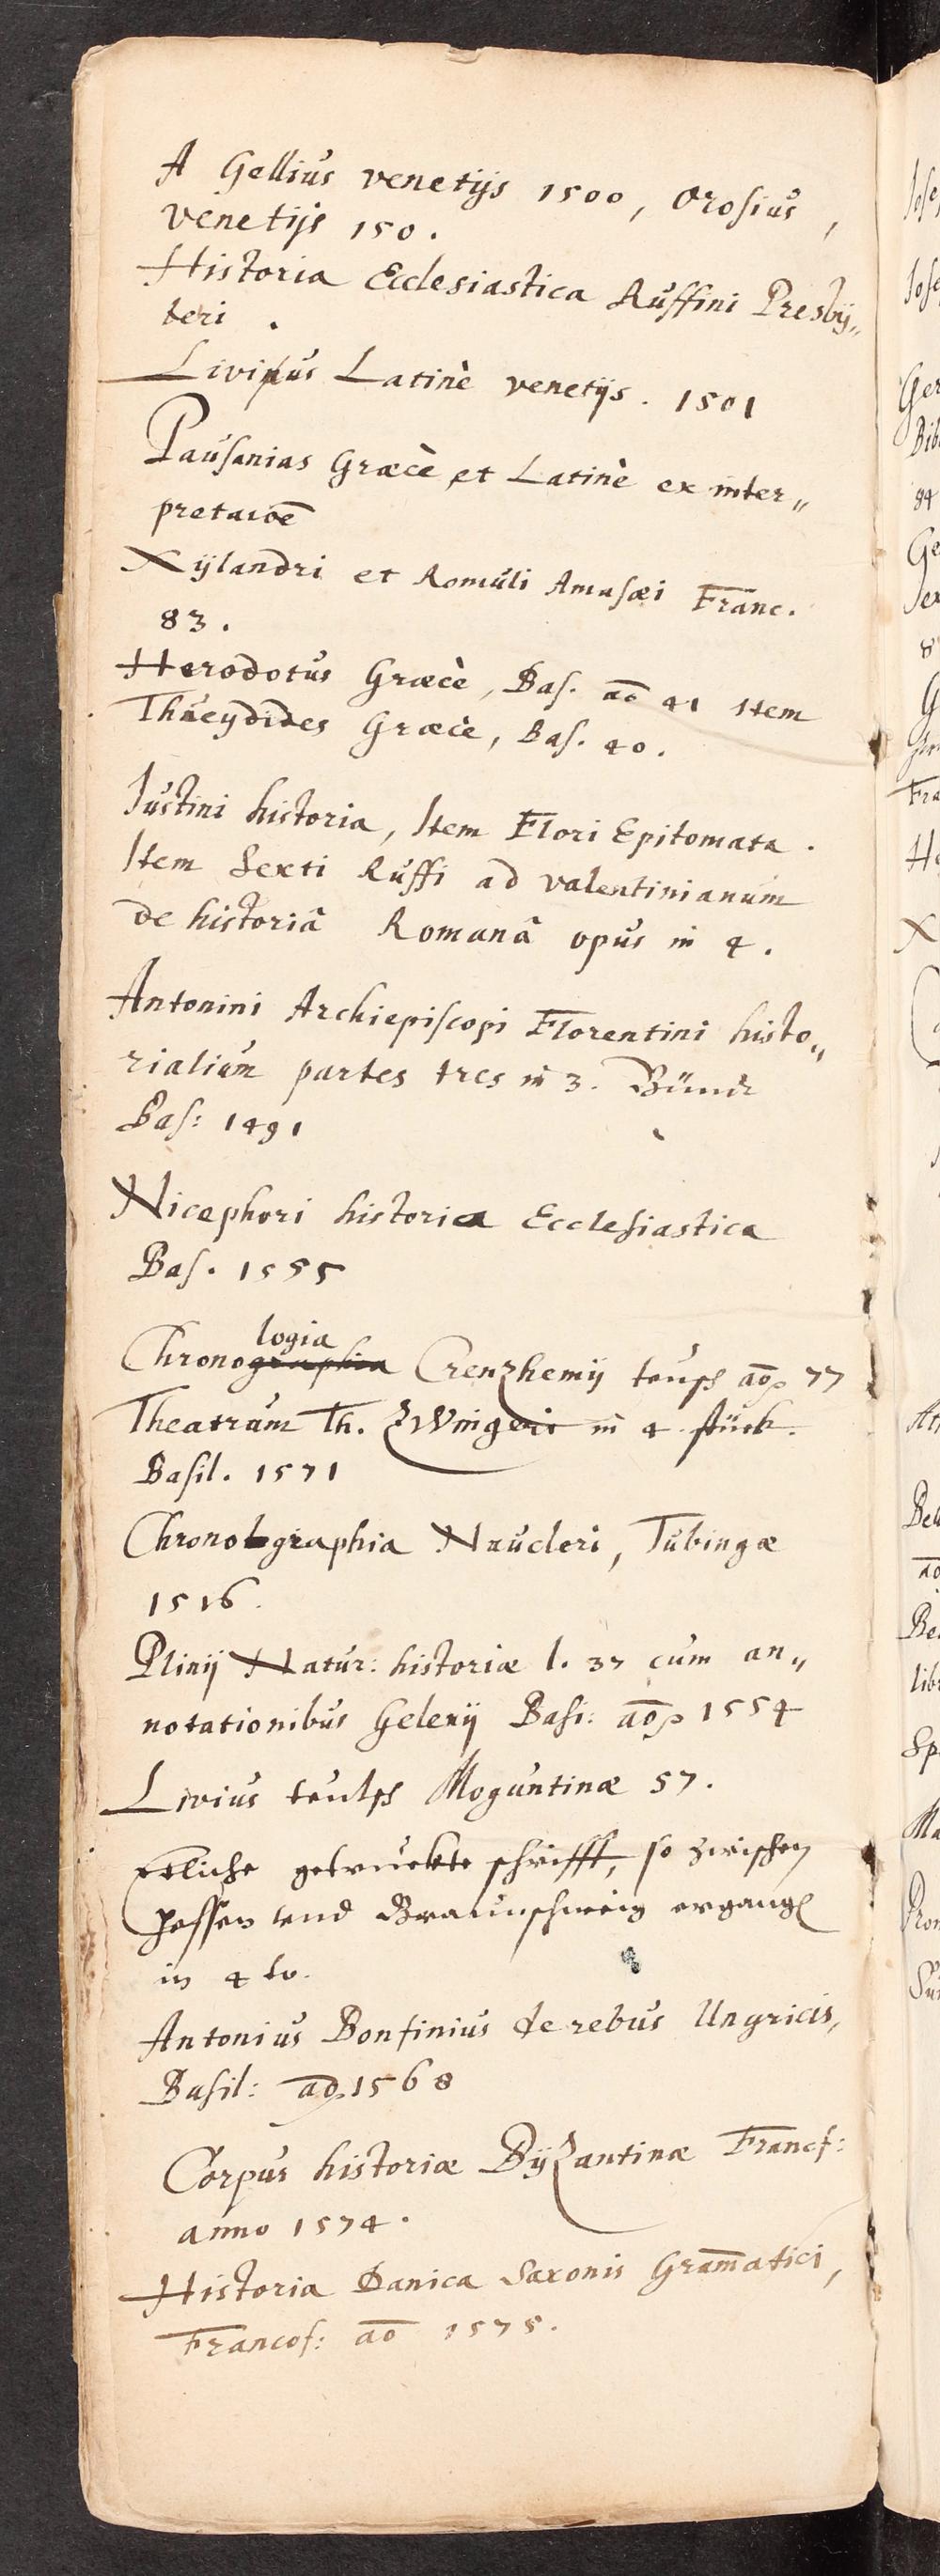 A Gellius venetijs 1500, Orosius,
venetijs 150.
Historia Ecclesiastica Ruffini Presby„
teri.
Livius Latinè venetijs. 1501
Pausanias Græcè et Latinè ex inter„
pretatioē
Xylandri et Romuli Amasæi Franc.
83.
Herodotus Græcè, Bas. aō 41 Item
Thucydides Græcè, Bas. 40.
Iustini historia, Item Flori Epitomata.
Item Sexti Ruffi ad valentinianum
de historiâ Romanâ opus in 4.
Antonini Archiepiscopi Florentini histo„
rialium partes tres in 3. Bünde
Bas: 1491
Nicephori historica Ecclesiastica
Bas. 1555
logia
Chronographia Crenzhemij teusch aō 77
Theatrum Th. Zwingeri in 4 stück.
Basil. 1571
Chronolographia Naucleri, Tubingæ
1516.
Plinij Natur: historiæ l. 37 cum an„
notationibus Gelenij Basi: aō 1554
Livius teutsch Moguntinæ 57.
Etliche getruckte schrifft, so zwischen
Hessen und Braunschweig ergangen
in 4to.
Antonius Bonfinius de rebus Ungricis,
Basil: aō 1568
Corpus historiæ Byzantinæ Francf:
anno 1574.
Historia Danica Saxonis Gram̄atici,
Francof: aō 1575.